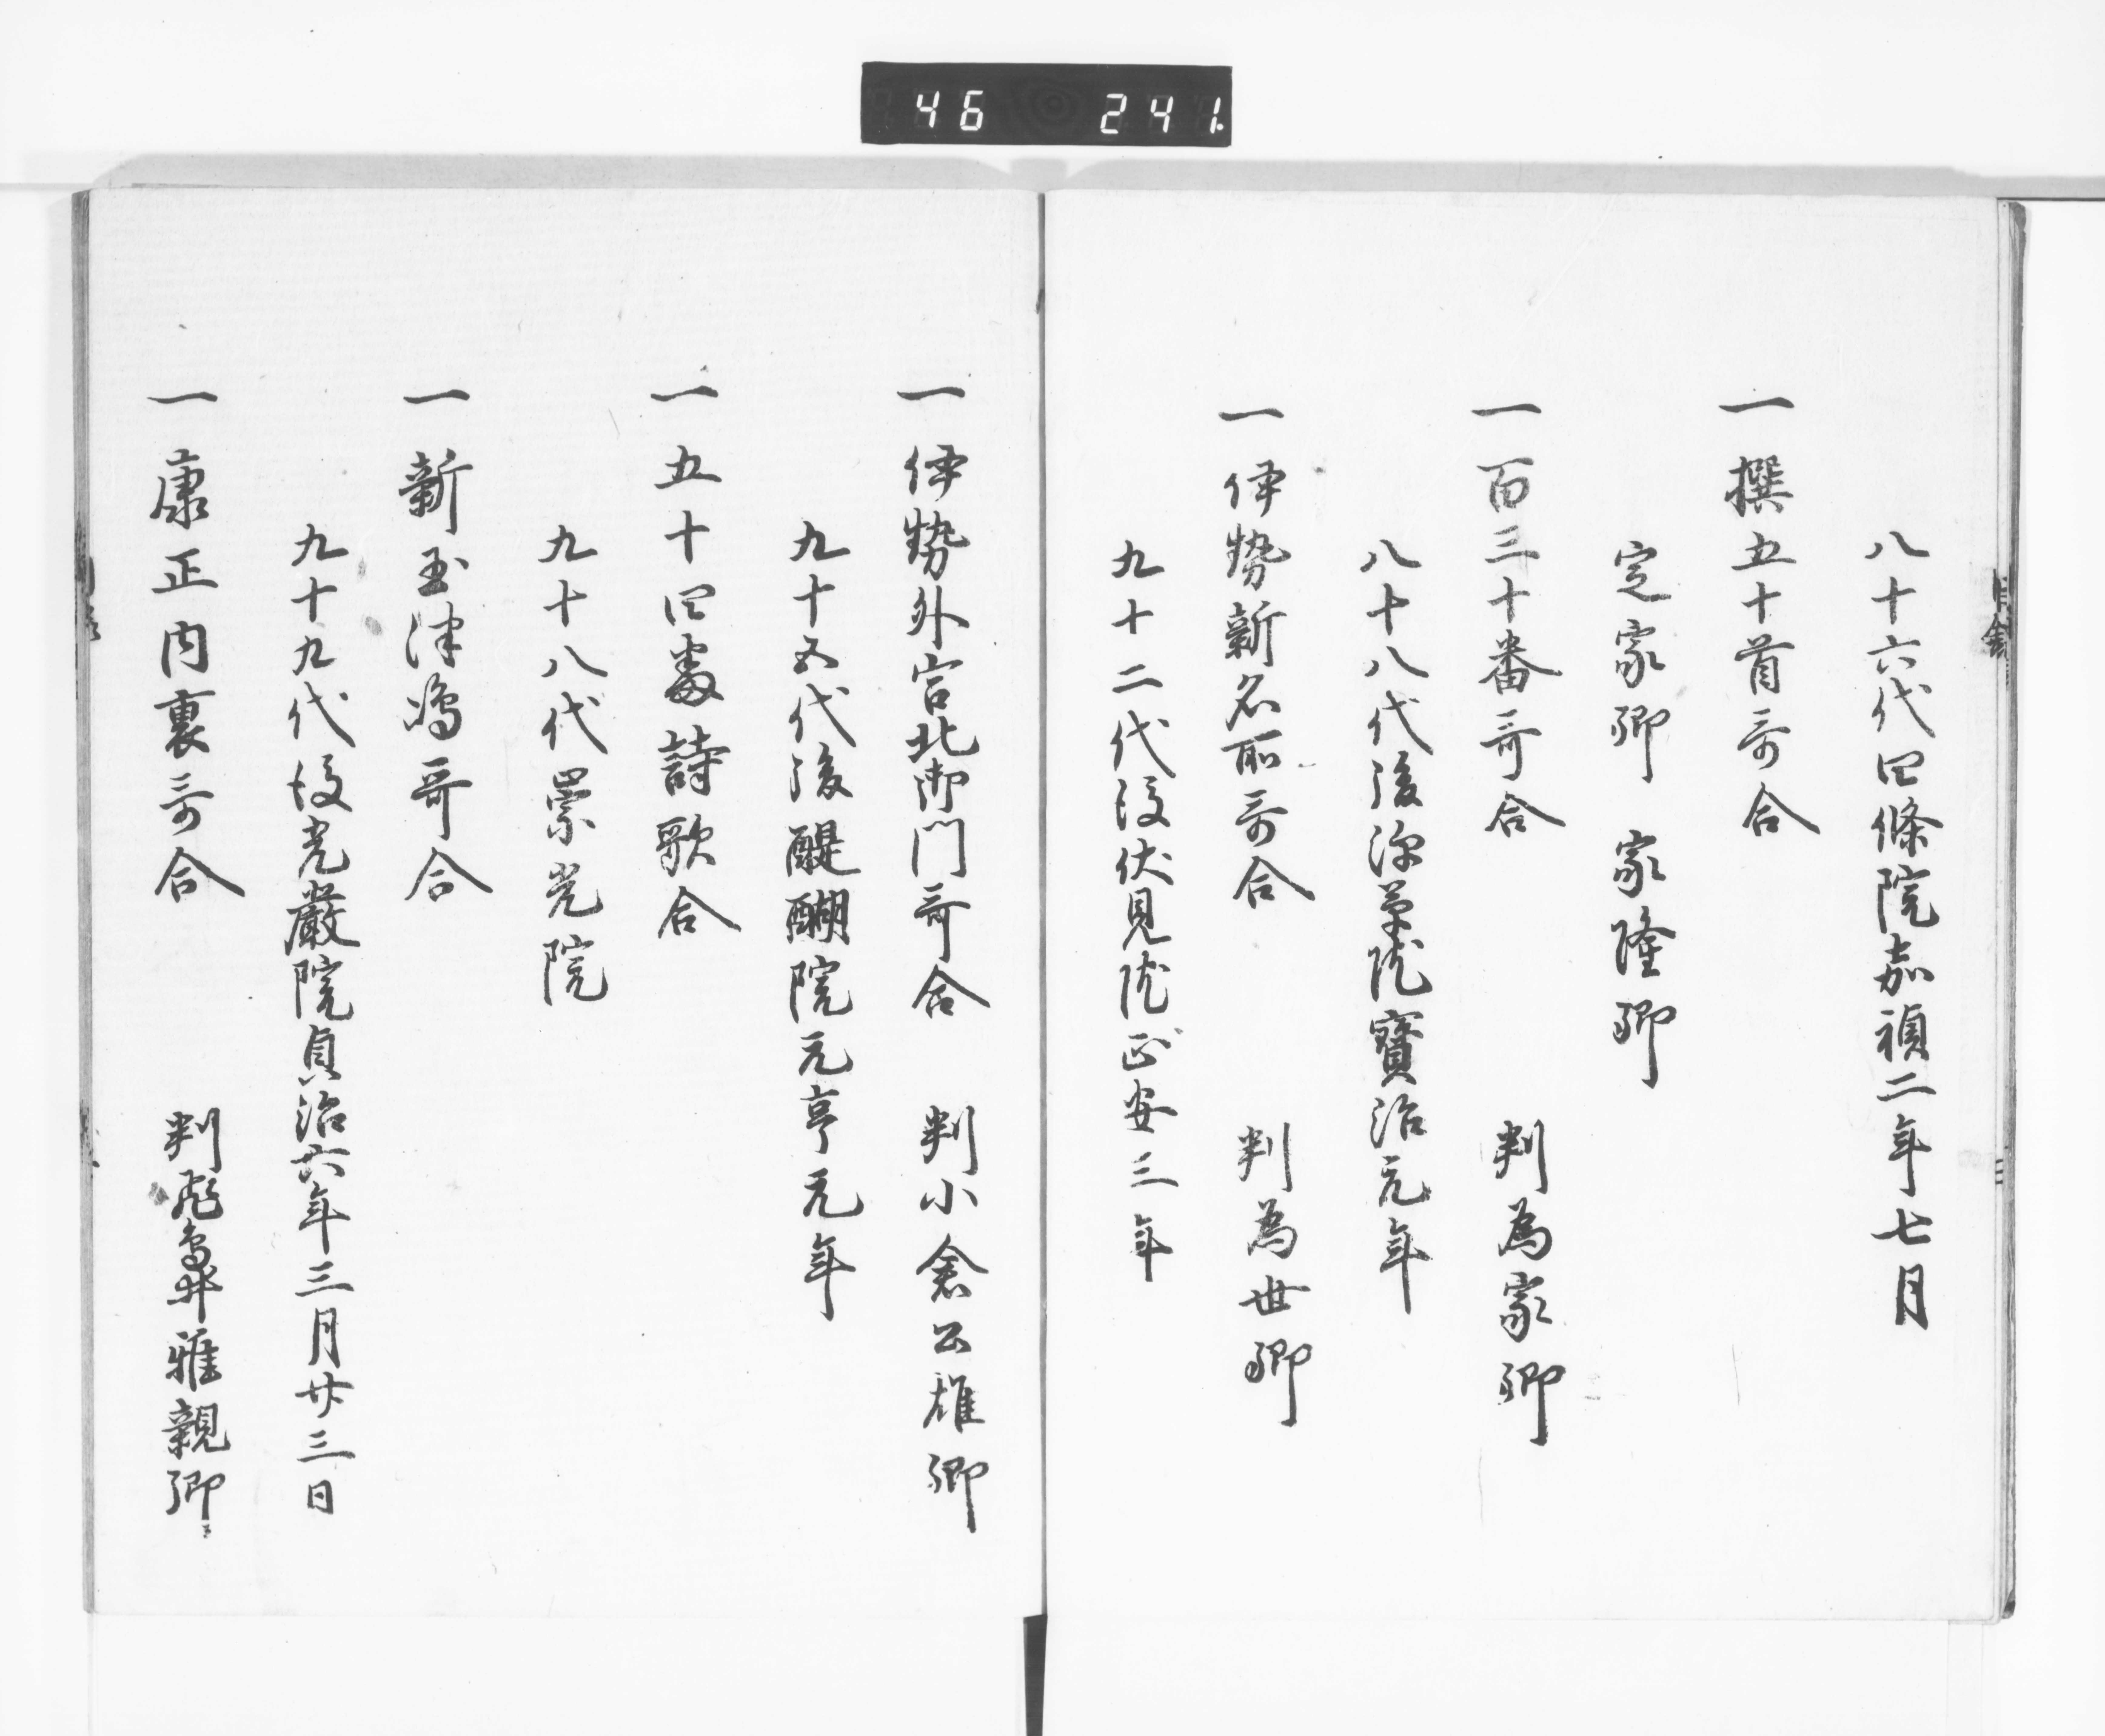 46 241
八十六代四條院嘉禎二年七月
一 撰五十首哥合
定家卿 家隆卿
一 百三十番哥合 判為家卿
八十八代後深草院寳治元年
一 伊勢新名所哥合 判為世卿
九十二代後伏見院正安三年
一 伊勢外宮北御門哥合 判小倉公雄卿
九十五代後醍醐院元亨元年
一 五十四番詩歌合
九十八代崇光院
一 新玉津嶋哥合
九十九代後光嚴院貞治六年三月廿三日
一 康正内裏哥合 判飛鳥井雅親卿